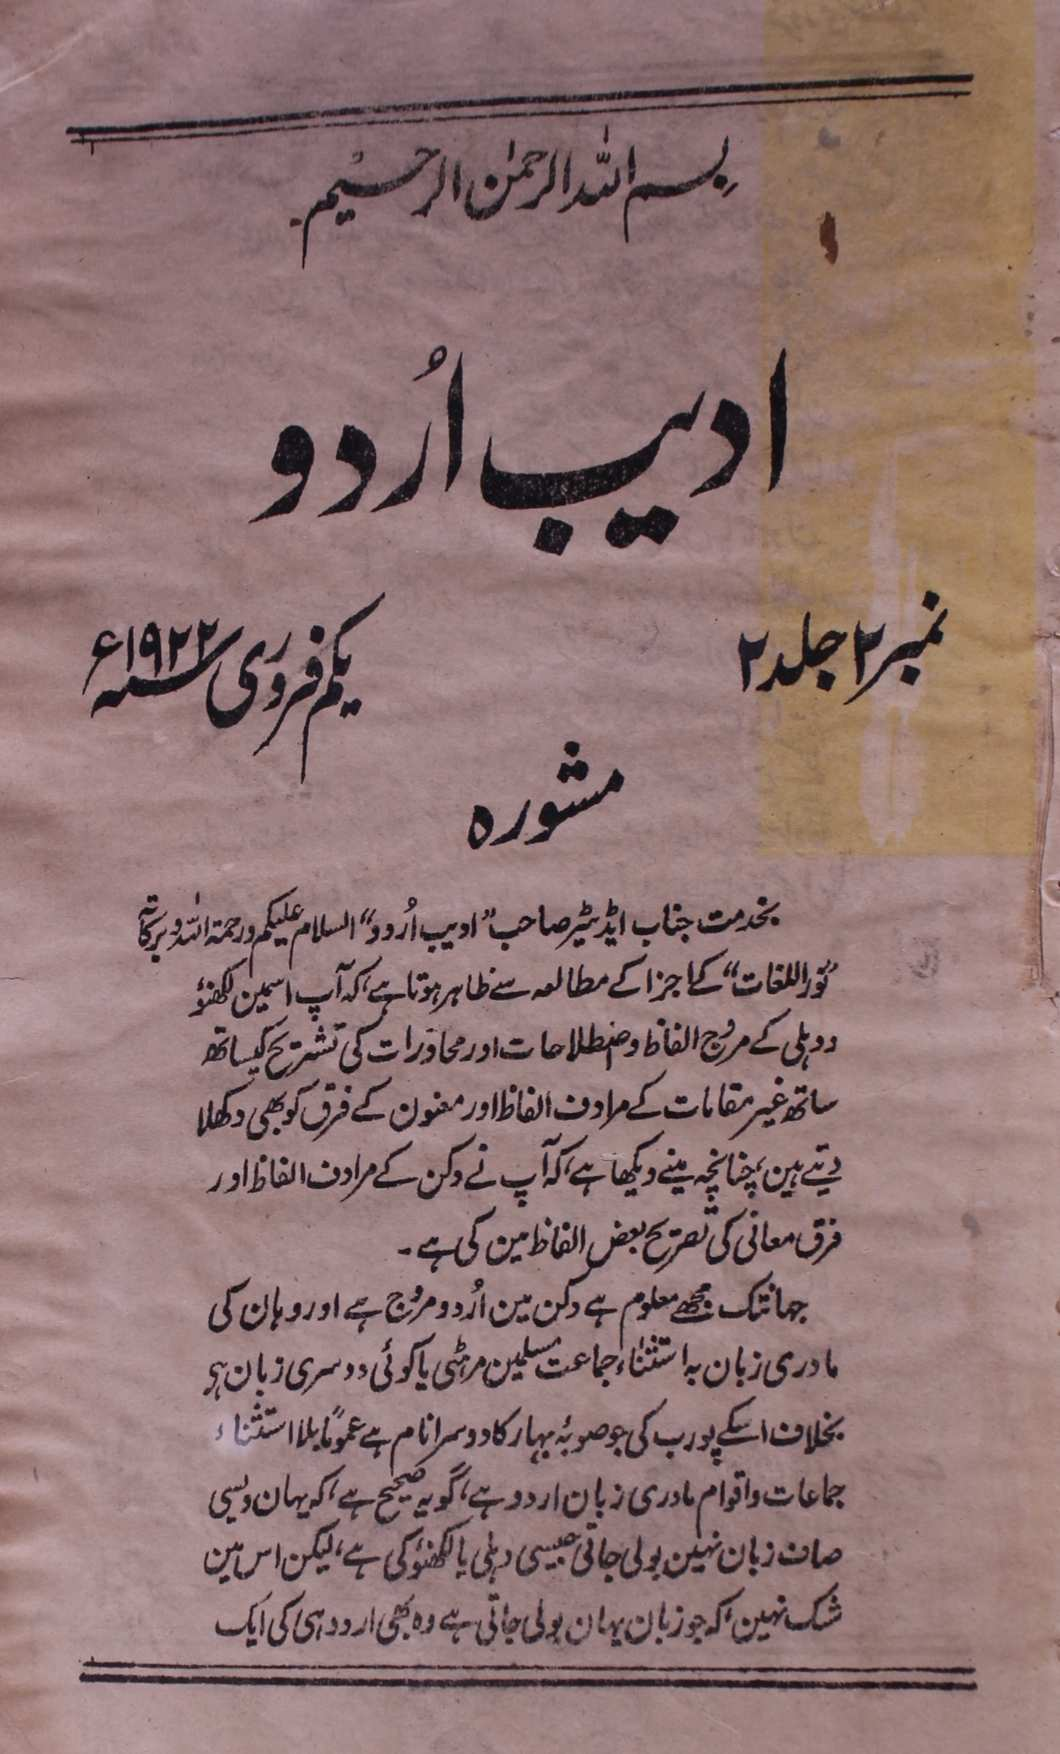 بسم اللہ الرحمٰن الرحیم
ادیب اُردو
نمبر ۲ جلد ۲
یکم فروری سنہ ۱۹۲۲ء
مشورہ
بخدمت جناب ایڈیٹر صاحب "ادیب اُردو" السلام علیکم ورحمۃ اللہ وبرکاتہ
"نور اللغات" کے اجزا کے مطالعہ سے ظاہر ہوتا ہے، کہ آپ اسمین لکھنؤ
و دہلی کے مروج الفاظ و اصطلاحات اور محاورات کی تشریح کیساتھ
ساتھ غیر مقامات کے مرادف الفاظ اور معنون کے فرق کو بھی دکھلا
دیتے ہین، چنانچہ مینے دیکھا ہے، کہ آپ نے دکن کے مرادف الفاظ اور
فرق معانی کی تصریح بعض الفاظ مین کی ہے۔
جہانتک مجھے معلوم ہے دکن مین اُردو مروج ہے اور وہان کی
مادری زبان بہ استثناء جماعت مسلمین مرہٹی یا کوئی دوسری زبان ہو
بخلاف اسکے پورب کی جو صوبۂ بہار کا دوسرا نام ہے عموماً بلا استثناء
جماعات و اقوام مادری زبان اردو ہے، گو یہ صحیح ہے، کہ یہان ویسی
صاف زبان نہین بولی جاتی جیسی دہلی یا لکھنؤ کی ہے، لیکن اس مین
شک نہین، کہ جو زبان یہان بولی جاتی ہے وہ بھی اردو ہی کی ایک